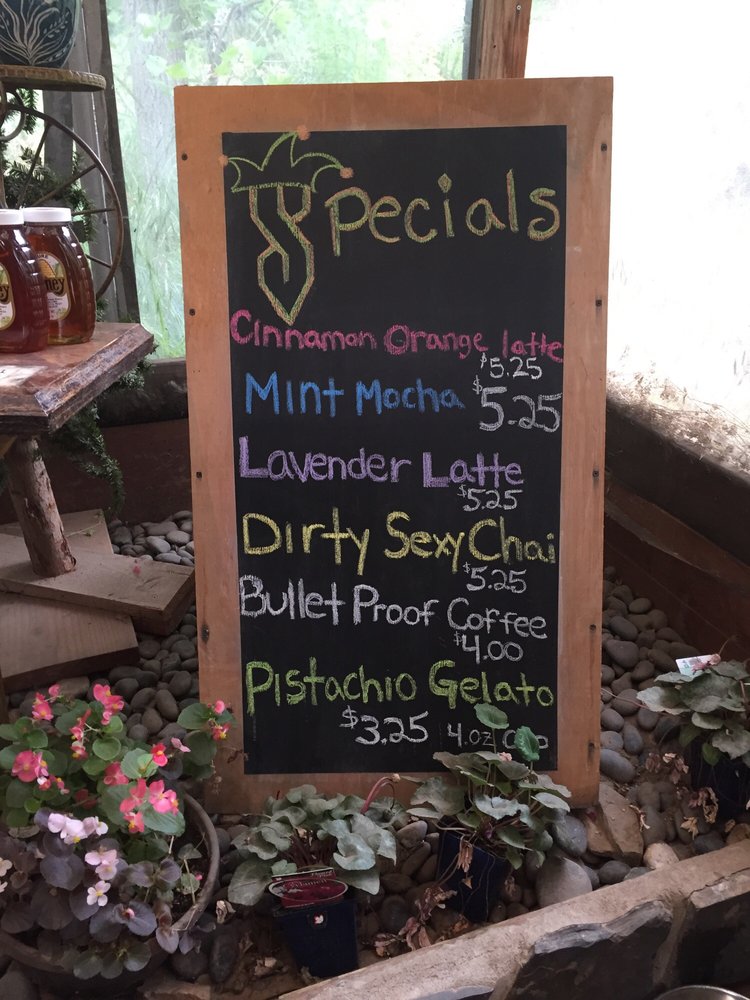 Specials
Cinnamon Orange latte
$5.25
Mint Mocha $5.25
Lavender Latte
$5.25
Dirty Sexy Chai
$5.25
Bullet Proof Coffee
$4.00
Pistachio Gelato
$3.25 4.oz Cup